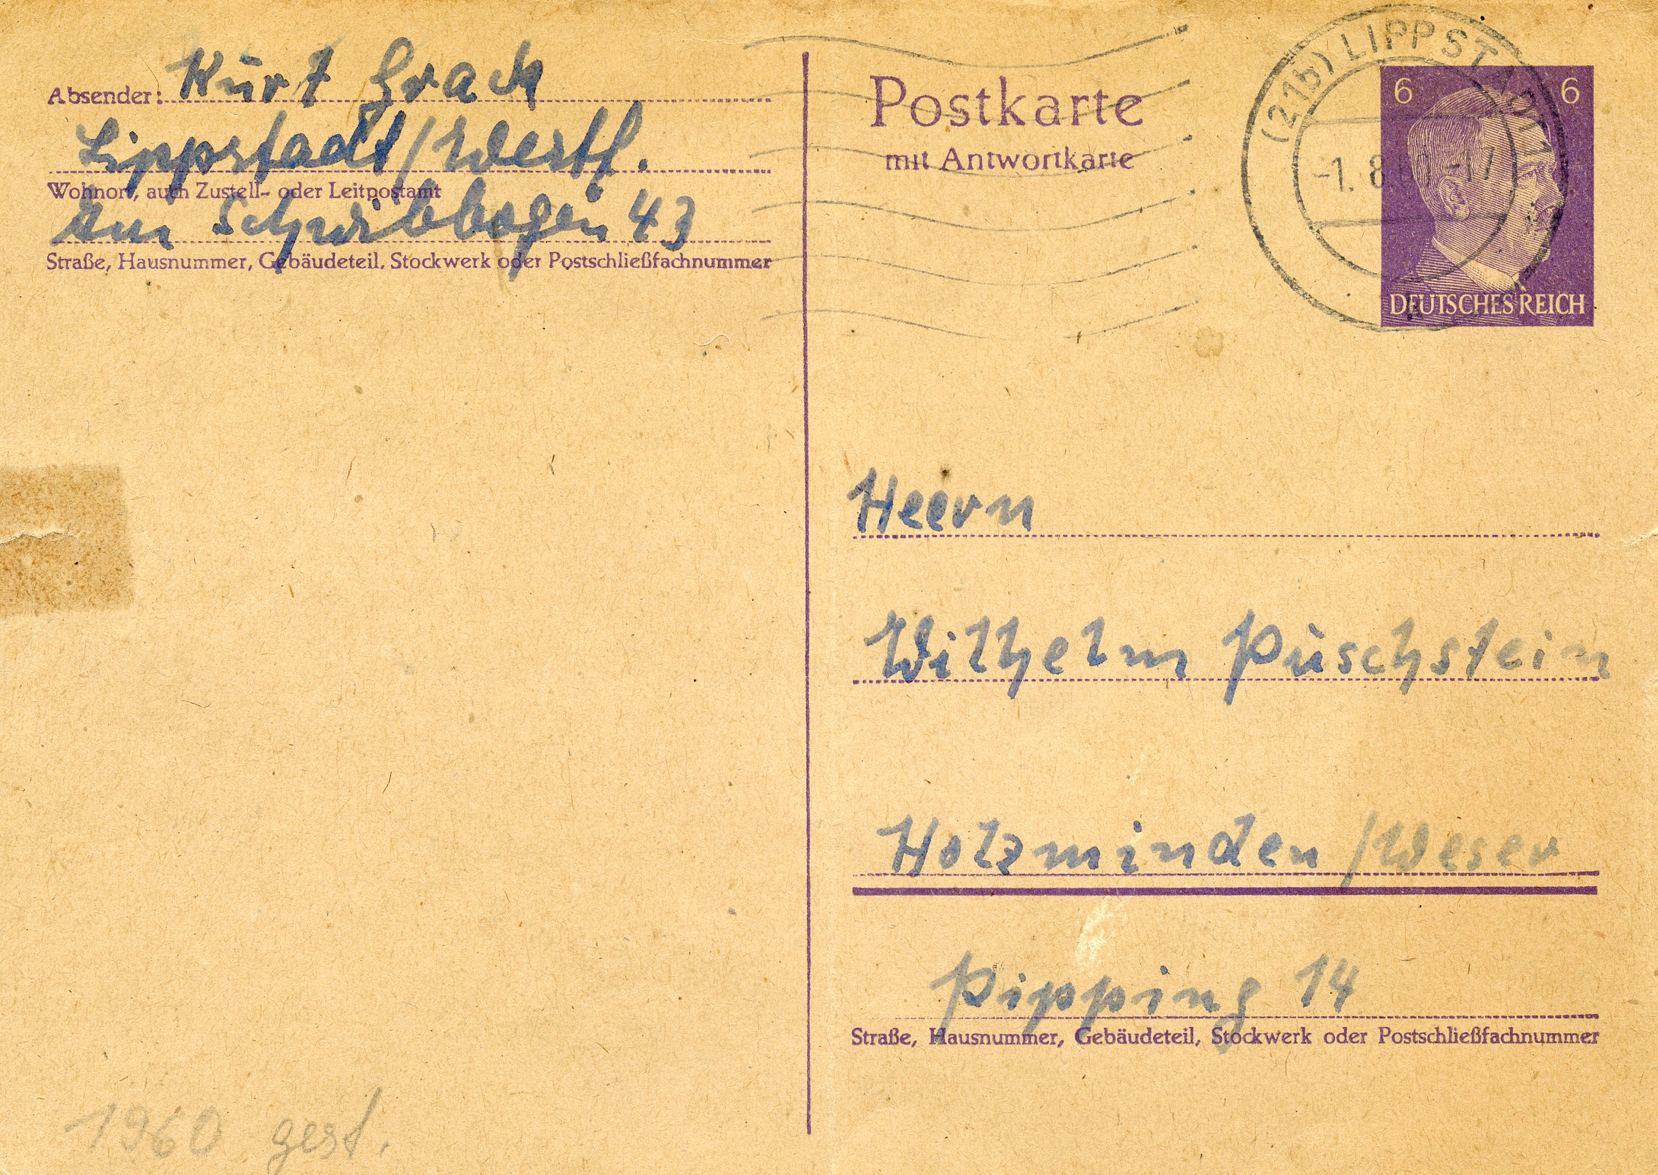 Absender: Kurt Grack
Lippstadt/Westf.
Wohnort, auch Zustell- oder Leitpostamt
Am Schwibbogen 43
Straße, Hausnummer, Gebäudeteil, Stockwerk oder Postschließfachnummer
Postkarte
mit Antwortkarte
(21b) LIPPSTADT 1
-1. 8. -17
6 6
DEUTSCHES REICH
Heern
Wilhelm Püschstein
Holzminden/Weser
Pipping 14
Straße, Hausnummer, Gebäudeteil, Stockwerk oder Postschließfachnummer
1960 gest.